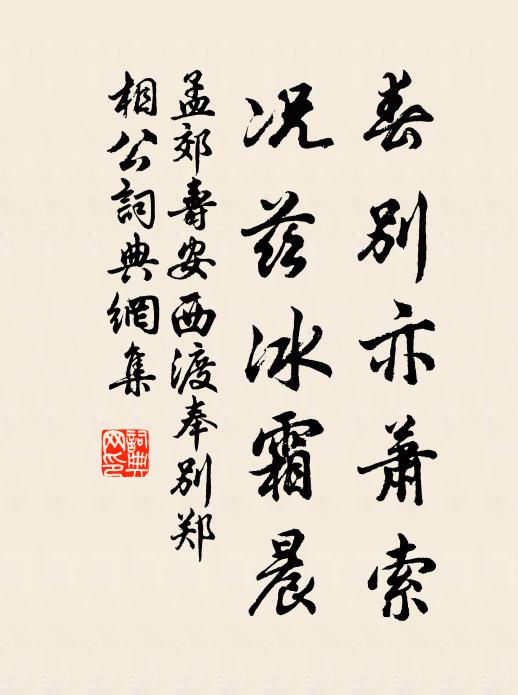 春别亦萧索
况兹冰霜晨
孟郊寿安西渡奉别郑
相公詞典網集
詞典
网印